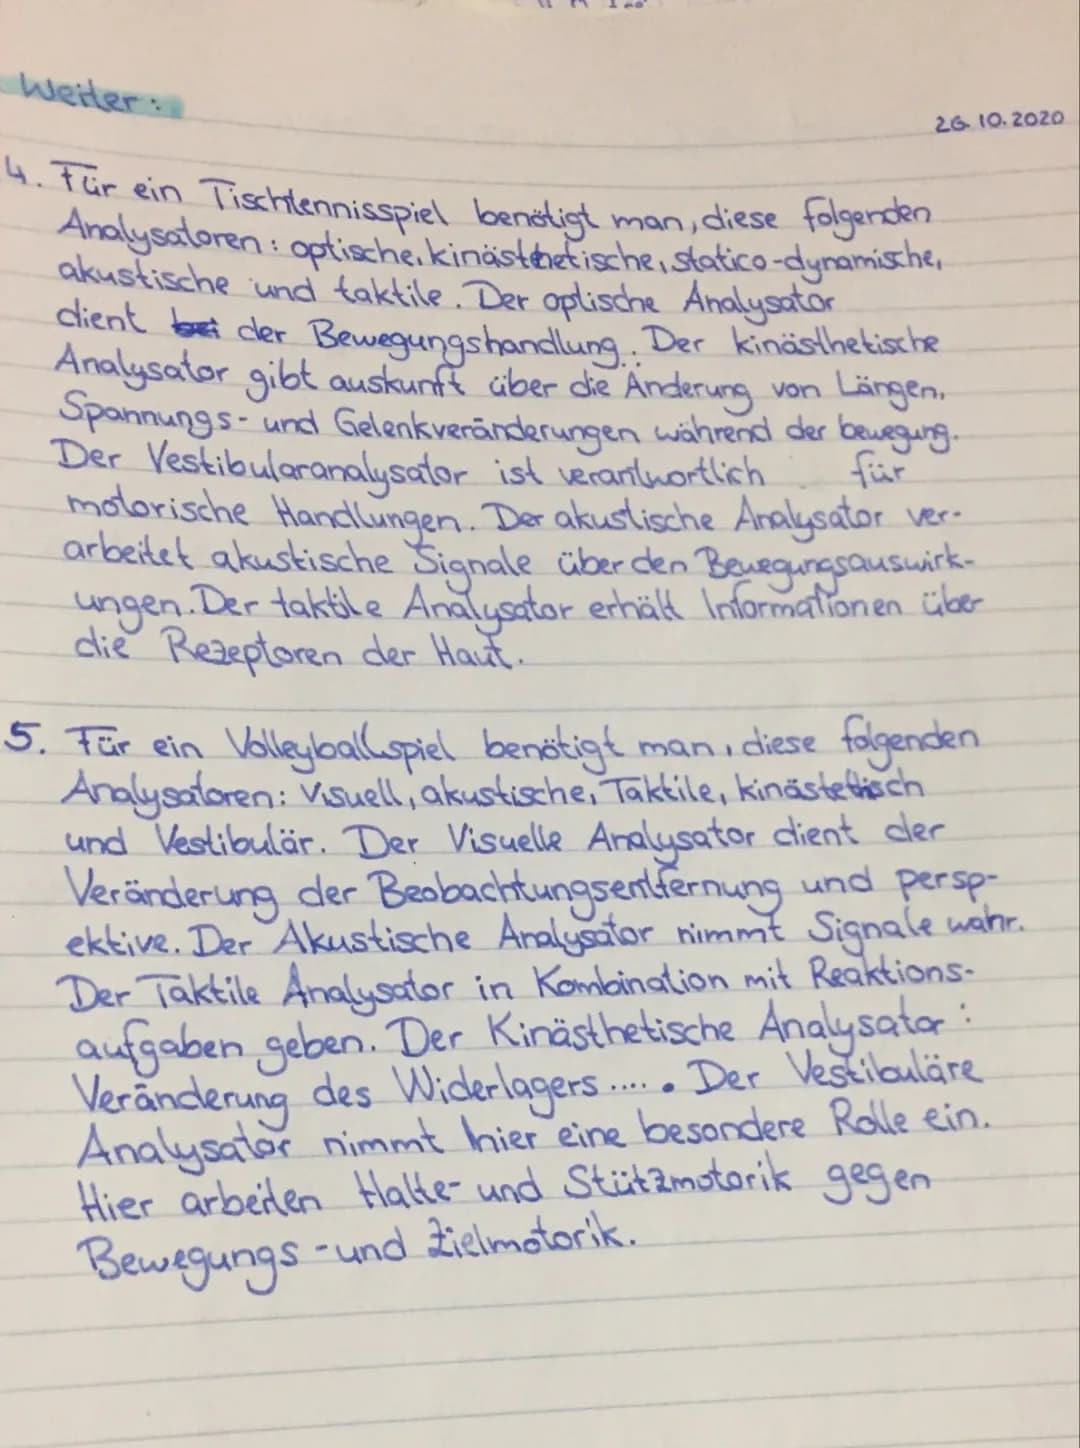 Weiter:
26.10.2020
4. Für ein Tischtennisspiel benötigt man, diese folgenden
Analysatoren: optische, kinästhetische, statico-dynamische,
akustische und taktile. Der optische Analysator
dient der Bewegungshandlung. Der kinästhetische
Analysator gibt auskunft über die Änderung von Längen,
Spannungs- und Gelenkveränderungen während der bewegung.
Der Vestibularanalysator ist verantwortlich für
motorische Handlungen. Der akustische Analysator ver-
arbeitet akustische Signale über den Bewegungsauswirk-
ungen. Der taktile Analysator erhält Informationen über
die Rezeptoren der Haut.
5. Für ein Volleyballspiel benötigt man, diese folgenden
Analysatoren: Visuell, akustische, Taktile, kinästethisch
und Vestibulär. Der Visuelle Analysator dient der
Veränderung der Beobachtungsentfernung und persp-
ektive. Der Akustische Analysator nimmt Signale wahr.
Der Taktile Analysator in Kombination mit Reaktions-
aufgaben geben. Der Kinästhetische Analysator:
Veränderung des Widerlagers..... Der Vestibuläre
Analysator nimmt hier eine besondere Rolle ein.
Hier arbeiten Halte- und Stützmotorik gegen
Bewegungs-und Zielmotorik.